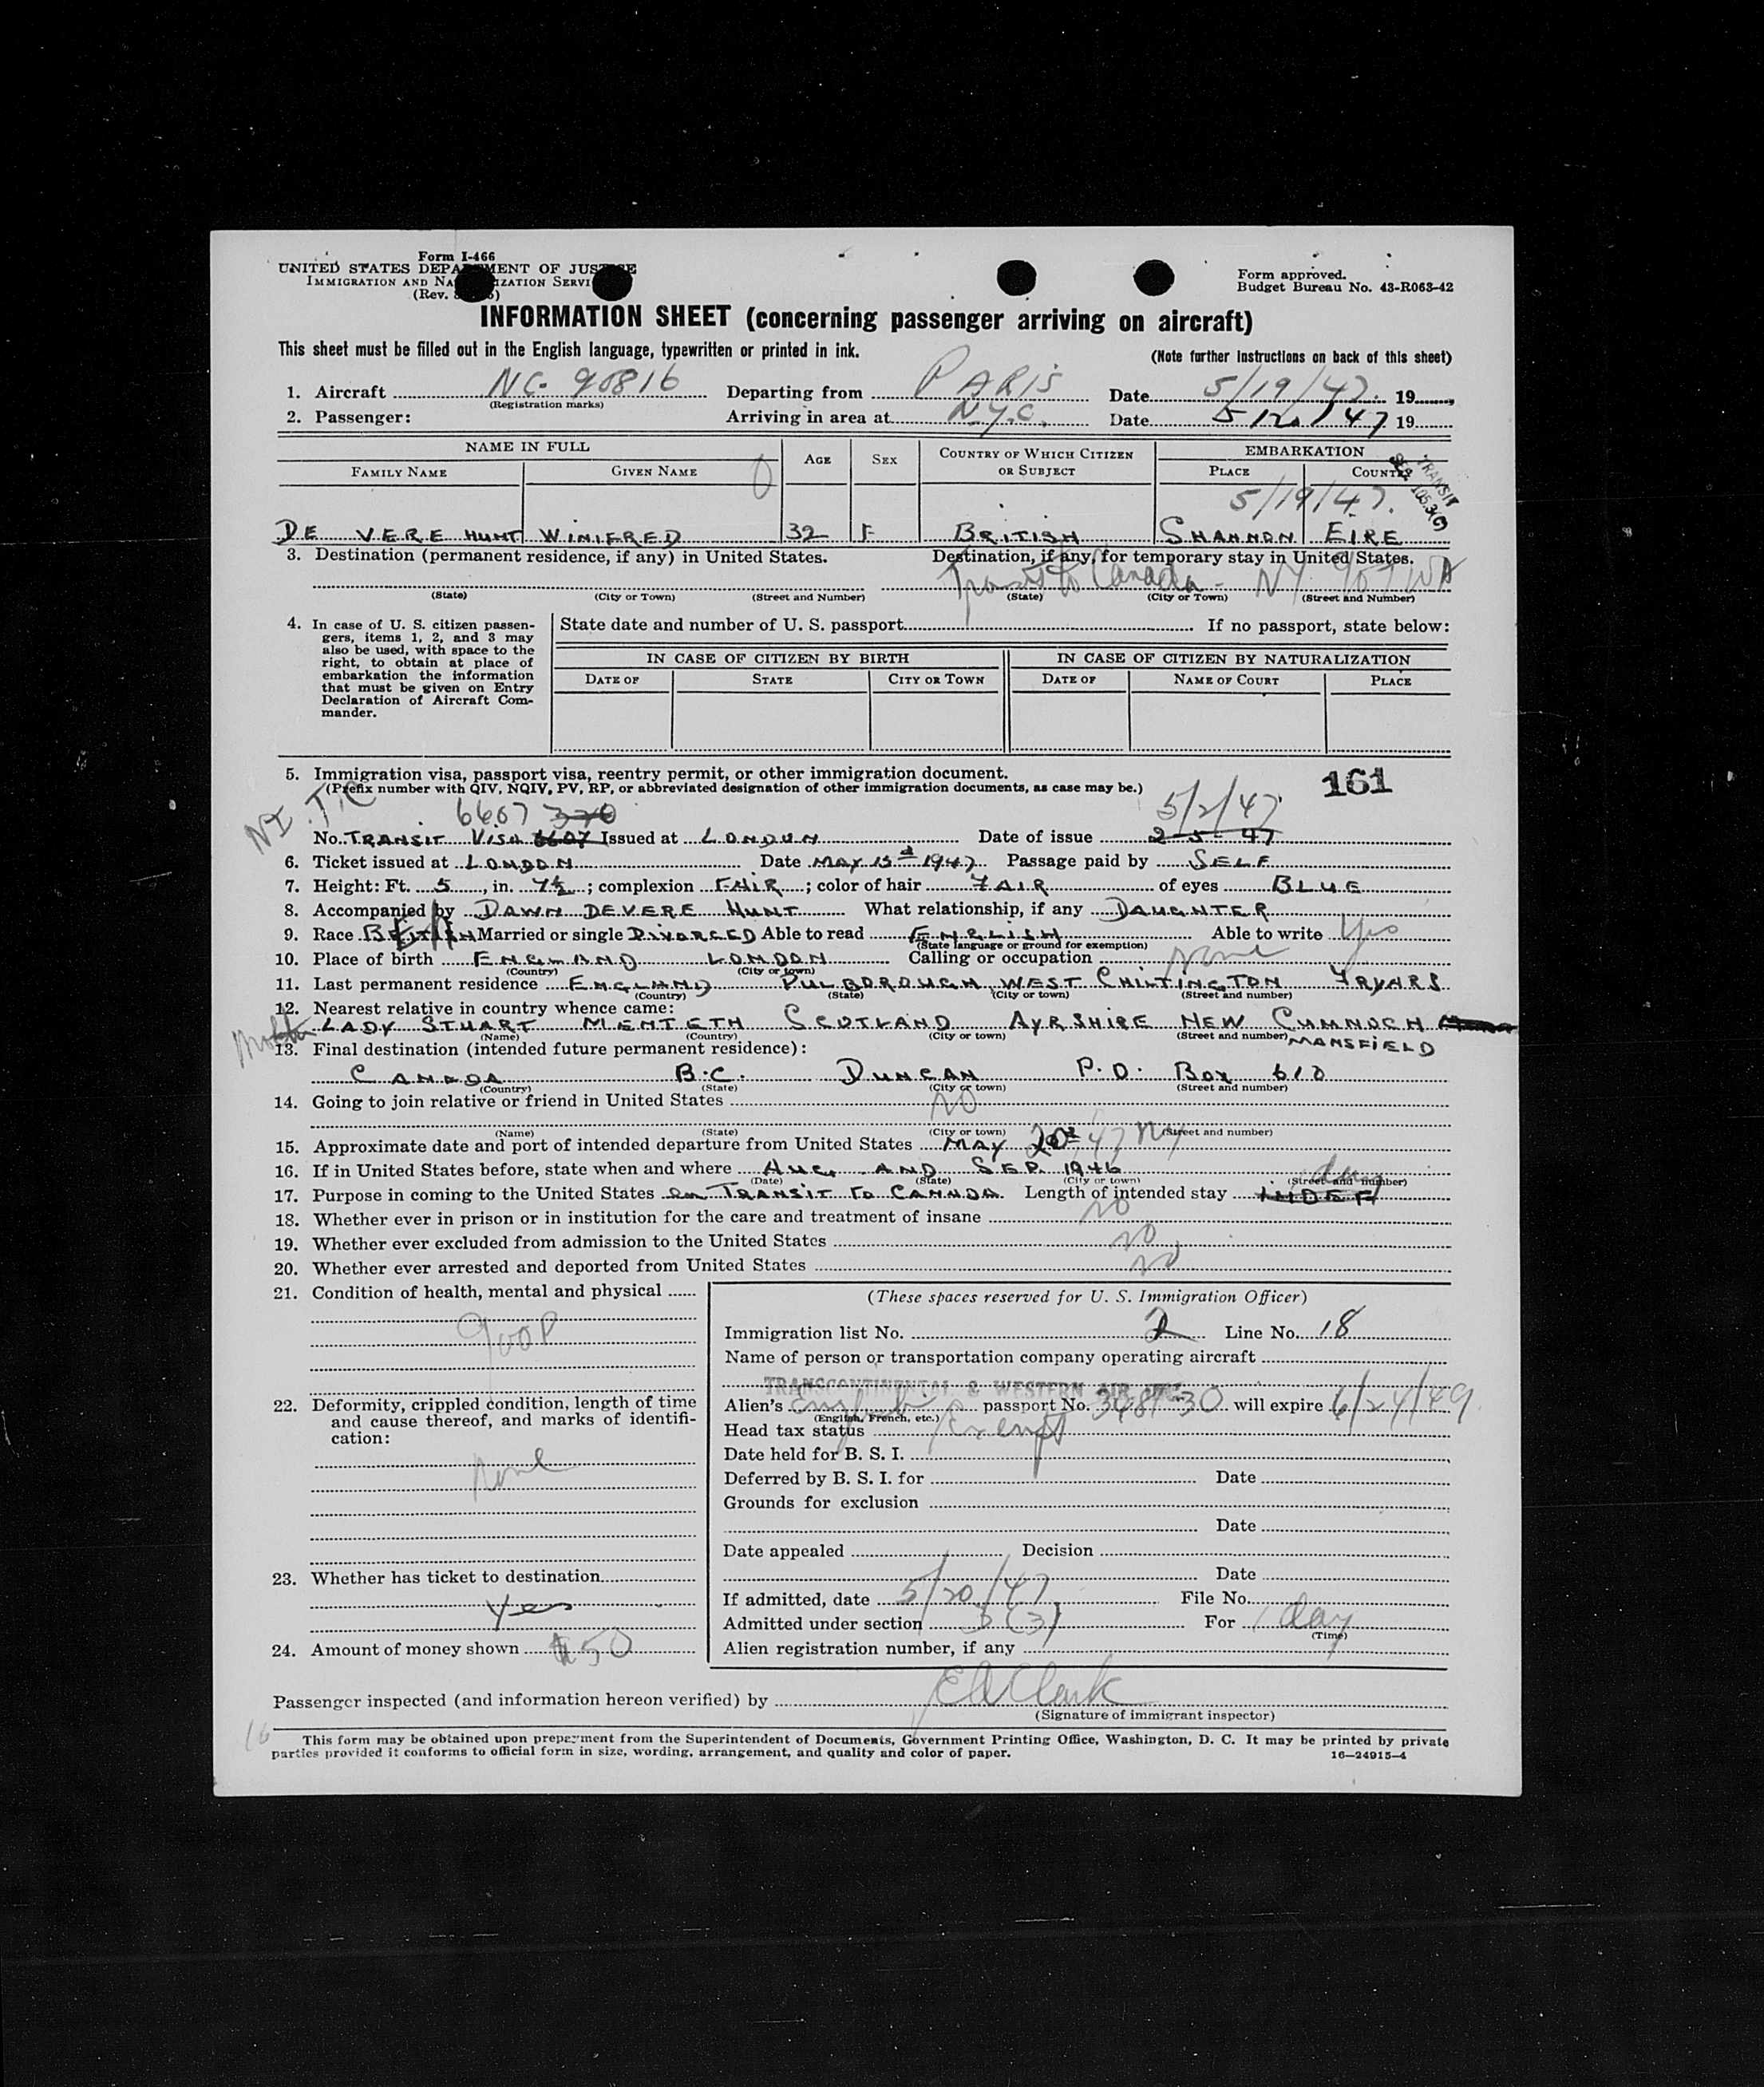 Form I-466
UNITED STATES DEPARTMENT OF JUSTICE
IMMIGRATION AND NATURALIZATION SERVI
(Rev.
Form approved.
Budget Bureau No. 43-R063-42
INFORMATION SHEET (concerning passenger arriving on aircraft)
This sheet must be filled out in the English language, typewritten or printed in ink.
(Note further instructions on back of this sheet)
1. Aircraft NC- 90816 Departing from PARIS Date 5/19/47. 19
(Registration marks)
2. Passenger: Arriving in area at N.Y.C. Date 5/20/47 19
NAME IN FULL AGE SEX COUNTRY OF WHICH CITIZEN OR SUBJECT EMBARKATION
FAMILY NAME GIVEN NAME PLACE COUNTRY
TRANSIT
5/19/47.
DE VERE HUNT WINIFRED 32 F BRITISH SHANNON EIRE
3. Destination (permanent residence, if any) in United States. Destination, if any, for temporary stay in United States.
Transit to Canada - NY TWA
(State) (City or Town) (Street and Number) (State) (City or Town) (Street and Number)
4. In case of U. S. citizen passen-
gers, items 1, 2, and 3 may
also be used, with space to the
right, to obtain at place of
embarkation the information
that must be given on Entry
Declaration of Aircraft Com-
mander.
State date and number of U. S. passport If no passport, state below:
IN CASE OF CITIZEN BY BIRTH IN CASE OF CITIZEN BY NATURALIZATION
DATE OF STATE CITY OR TOWN DATE OF NAME OF COURT PLACE
5. Immigration visa, passport visa, reentry permit, or other immigration document.
(Prefix number with QIV, NQIV, PV, RP, or abbreviated designation of other immigration documents, as case may be.)
161
6607 370 5/2/47.
No. TRANSIT VISA 6607 Issued at LONDON Date of issue 2-5-47
6. Ticket issued at LONDON Date MAY 15 1947 Passage paid by SELF
7. Height: Ft. 5, in. 7½; complexion FAIR; color of hair FAIR of eyes BLUE
8. Accompanied by DAWN DEVERE HUNT What relationship, if any DAUGHTER
9. Race BRITISH Married or single DIVORCED Able to read ENGLISH Able to write Yes
(State language or ground for exemption)
10. Place of birth ENGLAND LONDON Calling or occupation none
(Country) (City or town)
11. Last permanent residence ENGLAND PULBOROUGH WEST CHILTINGTON
(Country) (State) (City or town) (Street and number)
12. Nearest relative in country whence came:
Mother LADY STUART MENTETH SCOTLAND AYRSHIRE NEW CUMNOCK
(Name) (Country) (City or town) (Street and number)
MANSFIELD
13. Final destination (intended future permanent residence):
CANADA B.C. DUNCAN P.O. BOX 610
(Country) (State) (City or town) (Street and number)
14. Going to join relative or friend in United States NO
(Name) (State) (City or town) (Street and number)
15. Approximate date and port of intended departure from United States MAY 20 47 NY
16. If in United States before, state when and where AUG. AND SEP. 1946
(Date) (State) (City or town) (Street and number)
17. Purpose in coming to the United States en TRANSIT TO CANADA Length of intended stay INDEF day
18. Whether ever in prison or in institution for the care and treatment of insane no
19. Whether ever excluded from admission to the United States no
20. Whether ever arrested and deported from United States no
21. Condition of health, mental and physical
good
22. Deformity, crippled condition, length of time
and cause thereof, and marks of identifi-
cation:
none
23. Whether has ticket to destination
Yes
24. Amount of money shown $50
(These spaces reserved for U. S. Immigration Officer)
Immigration list No. 2 Line No. 18
Name of person or transportation company operating aircraft
TRANSCONTINENTAL & WESTERN AIR INC.
Alien's English passport No. 348130 will expire 6/24/49
(English, French, etc.)
Head tax status Exempt
Date held for B. S. I.
Deferred by B. S. I. for Date
Grounds for exclusion
Date
Date appealed Decision
Date
If admitted, date 5/20/47 File No.
Admitted under section 3(3) For 1 day
(Time)
Alien registration number, if any
Passenger inspected (and information hereon verified) by E A Clark
(Signature of immigrant inspector)
16
This form may be obtained upon prepayment from the Superintendent of Documents, Government Printing Office, Washington, D. C. It may be printed by private
parties provided it conforms to official form in size, wording, arrangement, and quality and color of paper.
16—24915-4